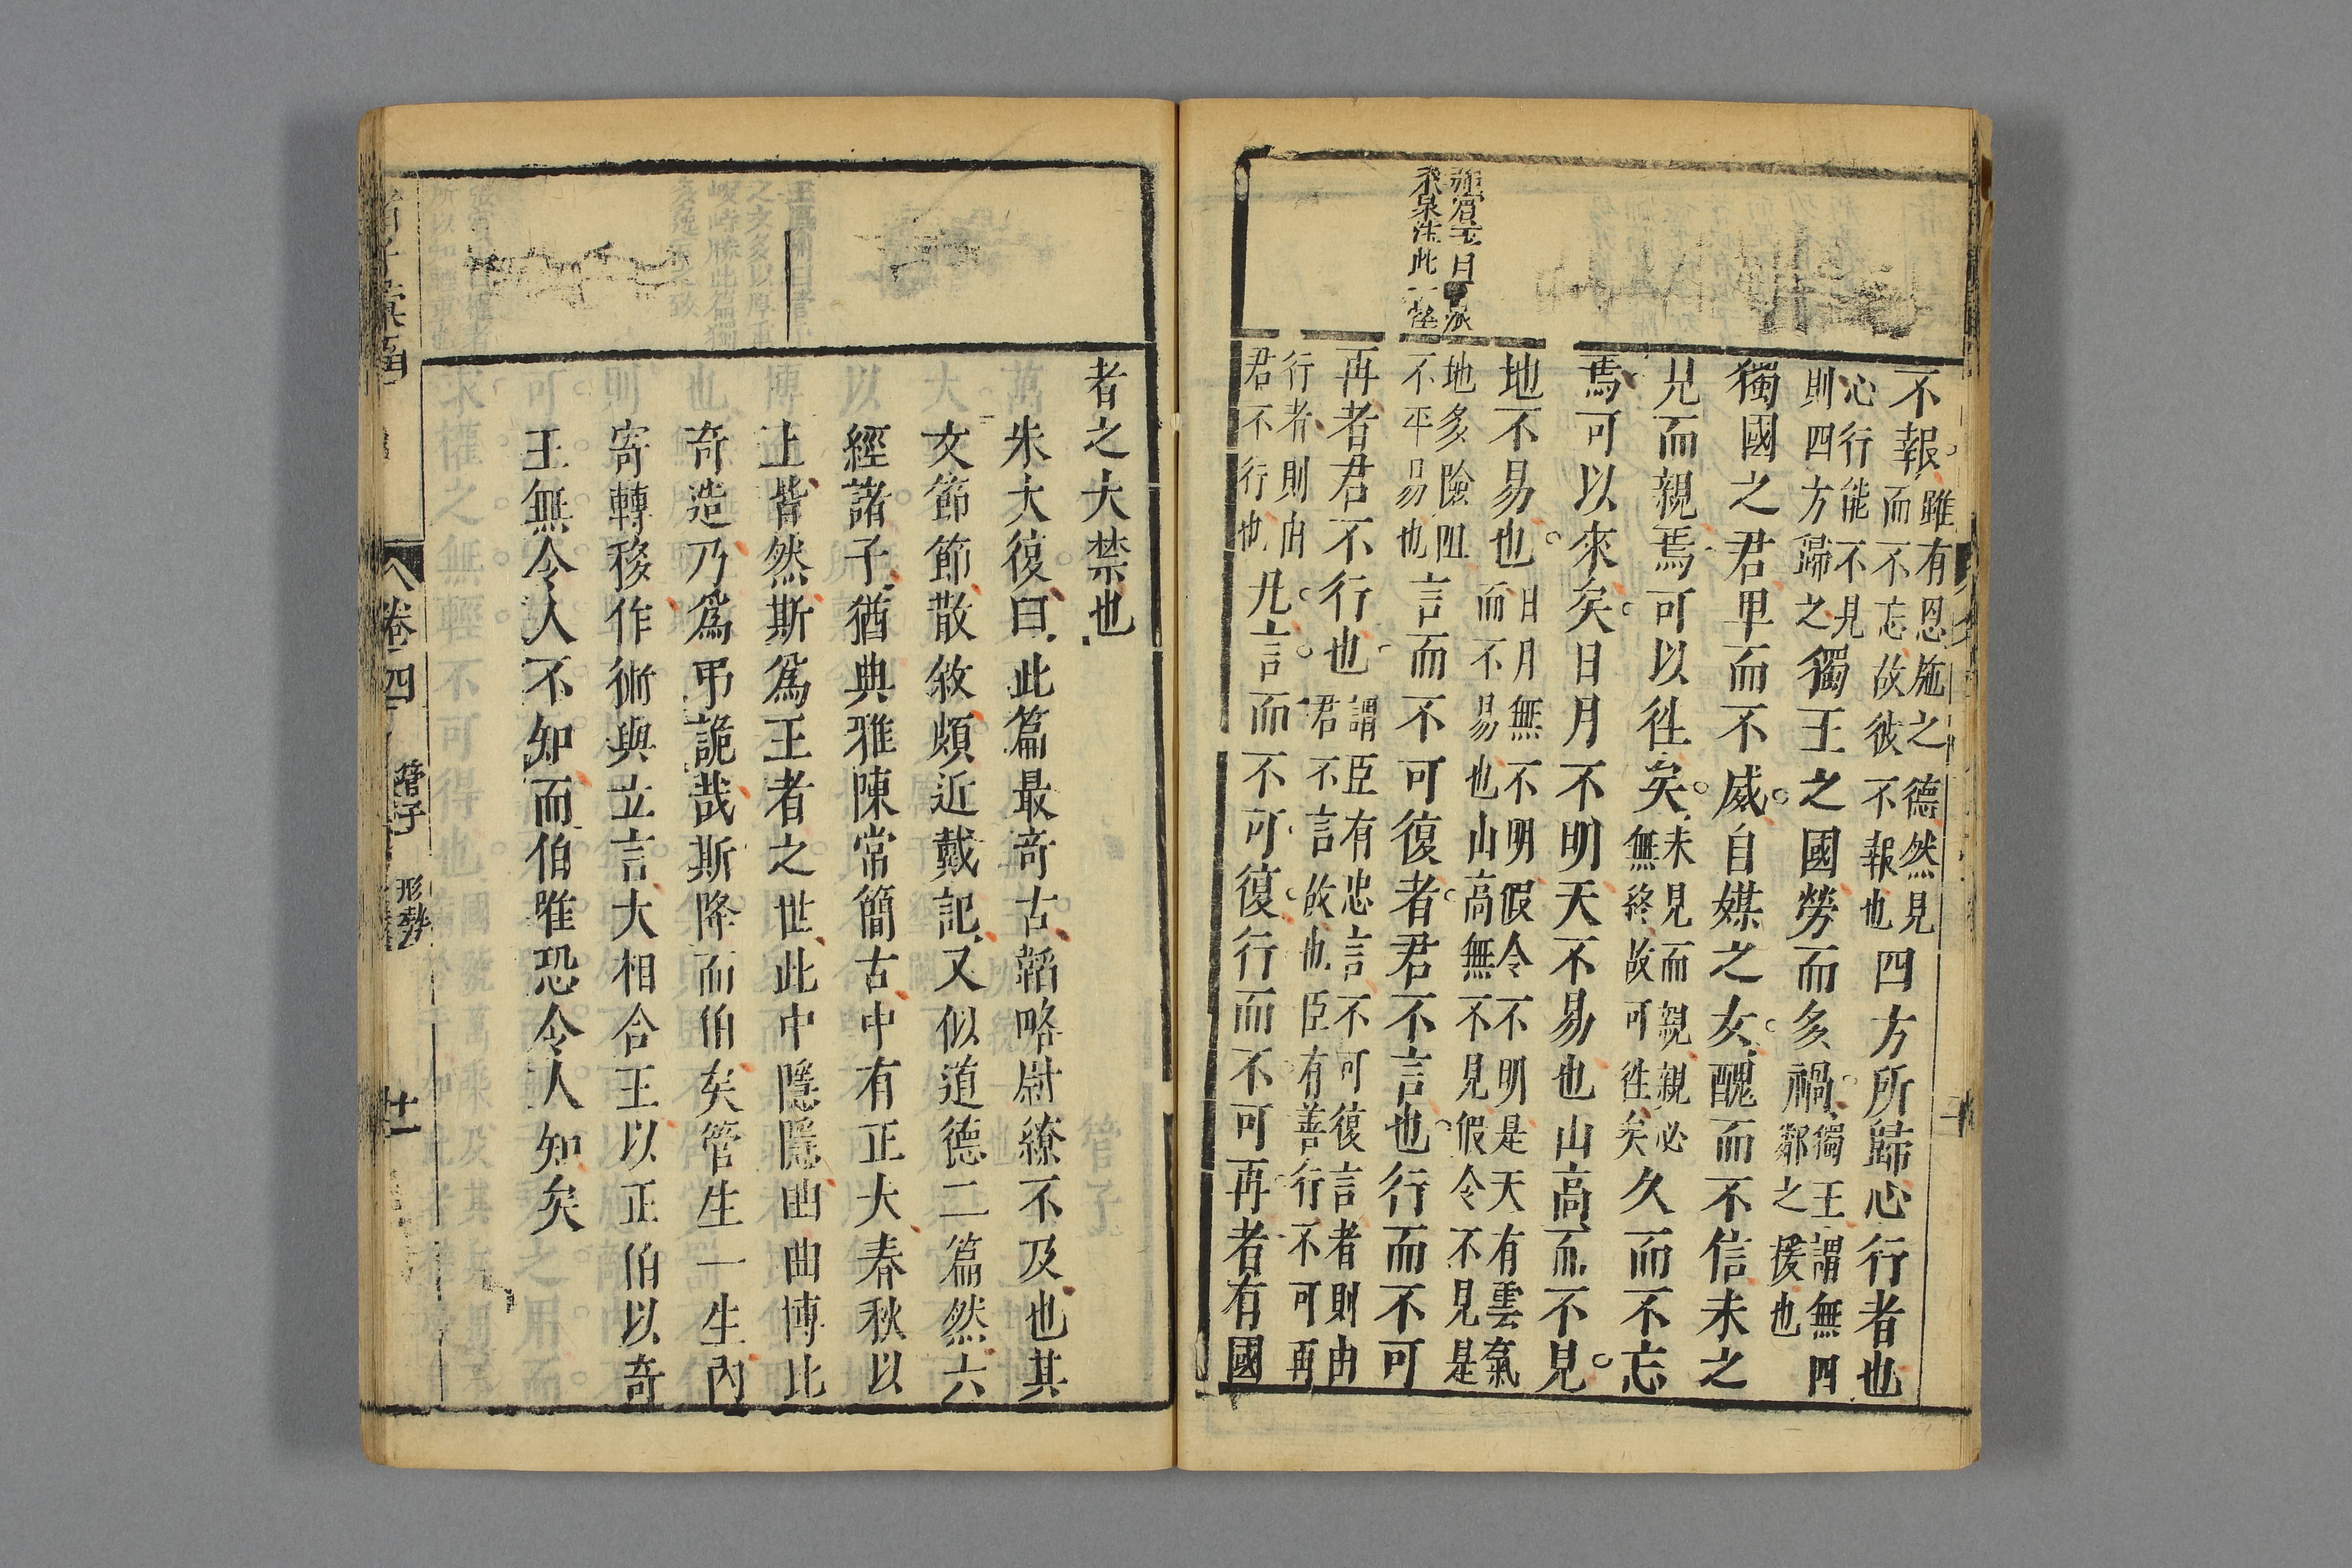 不報雖有恩施之德然見而不忘故彼不報也四方所歸心行者也
心行能不見則四方歸之獨王之國勞而多禍獨王謂無四鄰之援也
獨國之君卑而不威自媒之女醜而不信未之
見而親焉可以徃矣未見而親親必無終故可徃矣久而不忘
焉可以來矣日月不明天不易也山高而不見
地不易也日月無不明假令不明是天有雲氣而不易也山高無不見假令不見是
地多險阻不平易也言而不可復者君不言也行而不可
再者君不行也謂臣有忠言不可復言者則由君不言故也臣有善行不可再
行者則由君不行也凡言而不可復行而不可再者有國
者之大禁也
朱大復曰此篇最奇古韜略尉繚不及也其
文節節散敘頗近戴記又似道德二篇然六
經諸子猶典雅陳常簡古中有正大春秋以
上皆然斯爲王者之世此中隱隱曲曲博比
奇造乃爲弔詭哉斯降而伯矣管生一生內
寄轉移作術與立言大相合王以正伯以奇
王無令人不知而伯唯恐令人知矣
卷四 管子 形勢 廿一